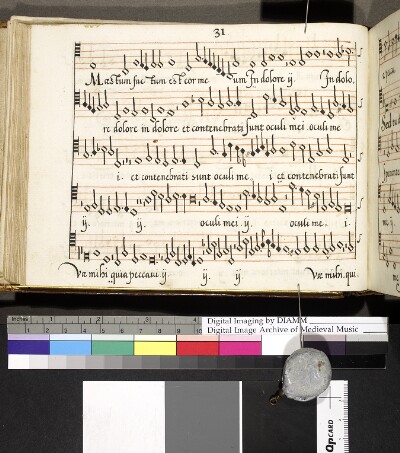 31
Mæstum fac tum est cor me um In dolore ij. In dolo,
re dolore in dolore et contenebrati sunt oculi mei .oculi me
i. et contenebrati sunt oculi me, i et contenebrati sunt
ij. ij. oculi mei .ij. oculi me, i.
Væ mihi quia peccavi .ij. ij. ij Væ mihi. qui.
Digital Imaging by DIAMM
Digital Image Archive of Medieval Music
inches 1 2 3 4
QpCARD